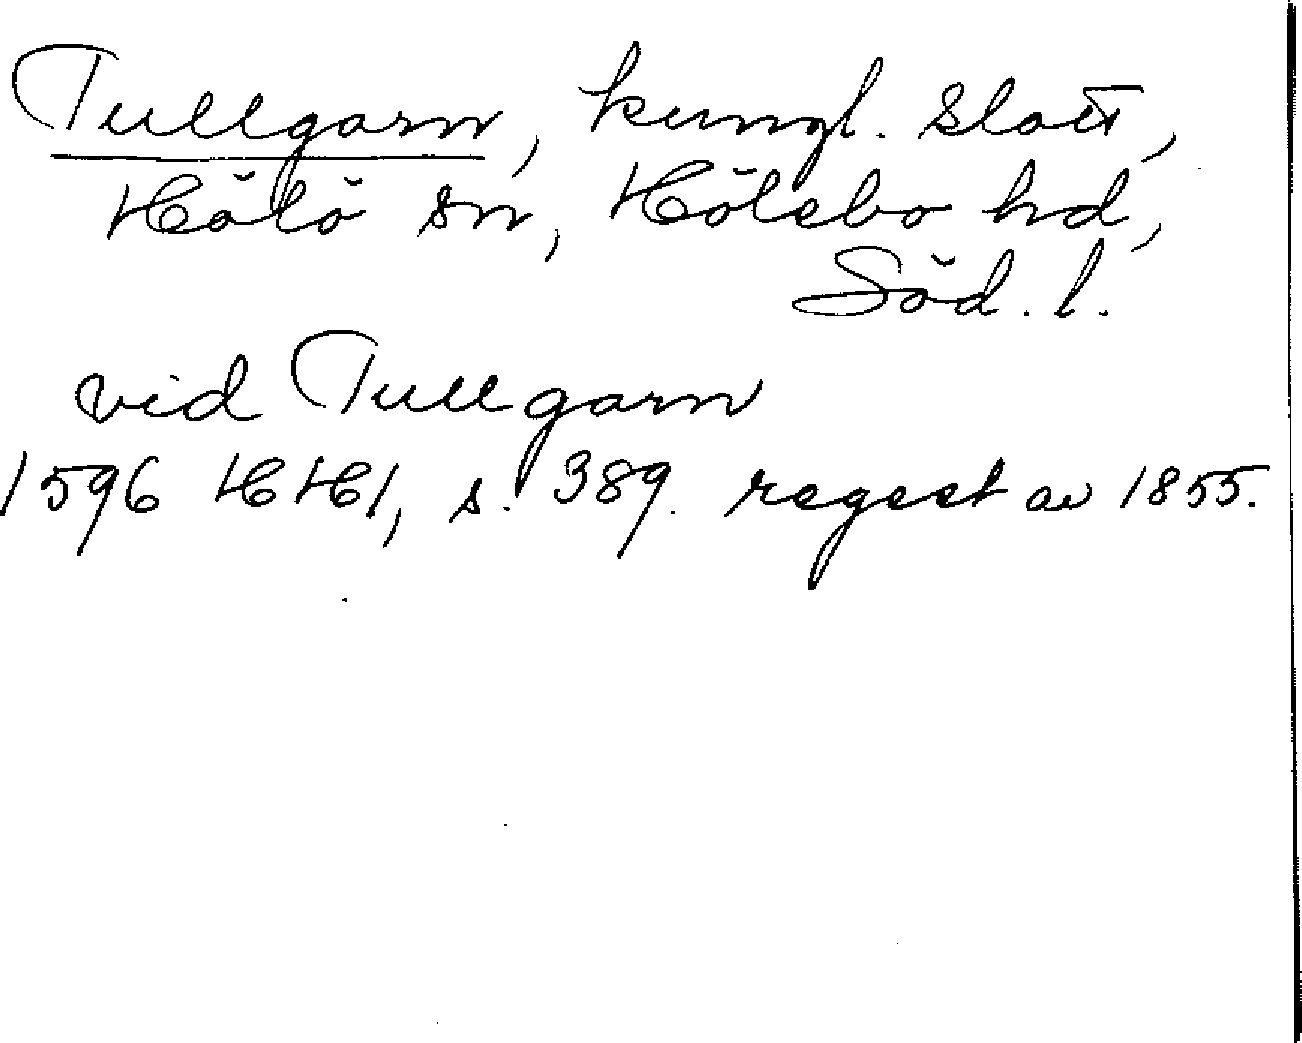 Tullgarn, kungl. slott,
Hölö sn, Hölebo hd,
Söd. l.
vid Tullgarn
1596 HH1, s. 389. regest av 1855.